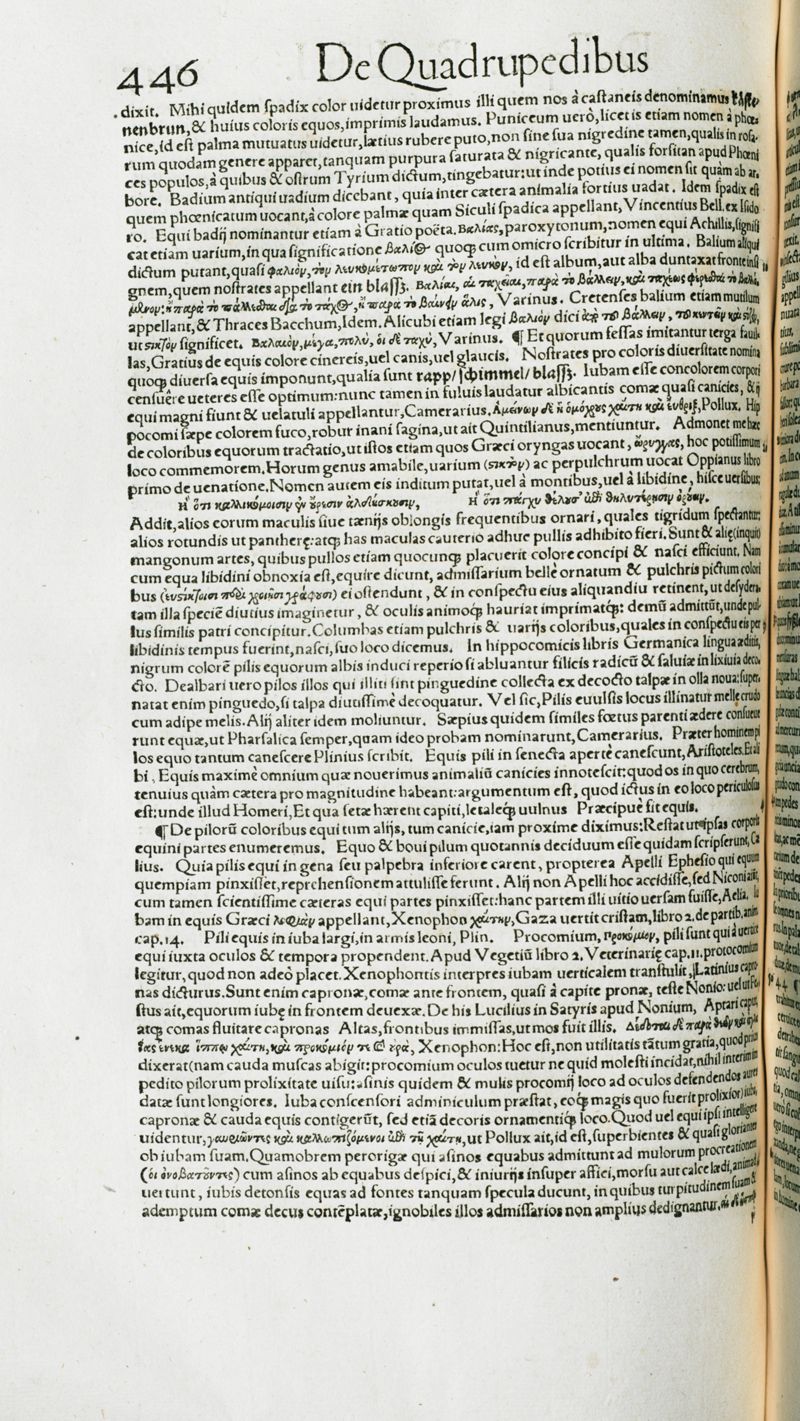 446 De Quadrupedibus
dixit. Mihi quidem ſpadix color uidetur proximus illi quem nos à caſtaneis denominamus
nenbrun, & huius coloris equos, imprimis laudamus. Puniceum uerò, licet is etiam nomen à phœ
nice, id eſt palma mutuatus uidetur, lætius rubere puto, non ſine ſua nigredine tamen, qualis in roſa
rum quodam genere apparet, tanquam purpura ſaturata & nigricante, qualis forſitan apud Phœni
ces populos, à quibus & oſtrum Tyrium dictum, tingebatur: ut inde potius ei nomen ſit quàm ab ar,
bore. Badium antiqui uadium dicebant, quia inter cætera animalia fortius uadat. Idem ſpadix eſt
quem phœnicatum uocant, à colore palmæ quam Siculi ſpadica appellant, Vincentius Bell. ex Iſido
ro. Equi badij nominantur etiam à Gratio poëta. Βαλίας, paroxytonum, nomen equi Achillis, ſignifi
cat etiam uarium, in qua ſignificatione βαλιὸς quoq; cum omicro ſcribitur in ultima. Balium aliqui
dictum putant, quaſi φαλιὸν, τὸν λευκομέτωπον καὶ τὸν λευκὸν, id eſt album, aut alba duntaxat fronte inſi
gnem, quem noſtrates appellant ein blaſſz. Βαλίαι, αἱ ταχεῖαι, παρὰ τὸ βάλλειν, καὶ ταχέως
Varinus. Cretenſes balium etiam mutilum
appellant, & Thraces Bacchum, Idem. Alicubi etiam legi βαλιὸν dici
ut ſignificet. Varinus. ¶ Et quorum feſſas imitantur terga fauil,
las, Gratius de equis colore cinereis, uel canis, uel glaucis. Noſtrates pro coloris diuerſitate nomina
quoq; diuerſa equis imponunt, qualia ſunt rapp/ ſchimmel/ blaſſz. Iubam eſſe concolorem corpori
cenſuêre ueteres eſſe optimum: nunc tamen in fuluis laudatur albicantis comæ quaſi canicies, & ij
equi magni fiunt & uelatuli appellantur, Camerarius. Pollux. Hip
pocomi ſæpe colorem fuco, robur inani ſagina, ut ait Quintilianus, mentiuntur. Admonet me hæc
de coloribus equorum tractatio, ut iſtos etiam quos Græci oryngas uocant, ὤρυγγας, hoc potiſſimum
loco commemorem. Horum genus amabile, uarium (στικτὸν) ac perpulchrum uocat Oppianus libro
primo de uenatione. Nomen autem eis inditum putat, uel à montibus, uel à libidine, hiſce uerſibus:
Η ὅτι καλλικόμοισιν ἐν οὔρεσιν ἀλδίσκουσιν, Η ὅτι πάγχυ θέλουσ' ἐπὶ θηλυτέρῃσιν ὀρούειν.
Addit, alios eorum maculis ſiue tænijs oblongis frequentibus ornari, quales tigridum ſpectantur:
alios rotundis ut pantheræ: atq; has maculas cauterio adhuc pullis adhibito fieri. Sunt & aliæ (inquit)
mangonum artes, quibus pullos etiam quocunq; placuerit colore concipi & naſci efficiunt. Nam
cum equa libidini obnoxia eſt, equire dicunt, admiſſarium belle ornatum & pulchris pictum colori
bus ei oſtendunt, & in conſpectu eius aliquandiu retinent, ut deſydera
tam illa ſpeciẽ diutius imaginetur, & oculis animoq; hauriat imprimatq;: demũ admittũt, unde pul-
lus ſimilis patri concipitur. Columbas etiam pulchris & uarijs coloribus, quales in conſpectu eis per
libidinis tempus fuerint, naſci, ſuo loco dicemus. In hippocomicis libris Germanica lingua æditis,
nigrum colorẽ pilis equorum albis induci reperio ſi abluantur filicis radicũ & ſaluiæ in lixiuia deco,
cto. Dealbari uero pilos illos qui illiti ſint pinguedine collecta ex decocto talpæ in olla noua: ſuper,
natat enim pinguedo, ſi talpa diutiſſimè decoquatur. Vel ſic, Pilis euulſis locus illinatur melle crudo
cum adipe melis. Alij aliter idem moliuntur. Sæpius quidem ſimiles fœtus parenti ædere conſueue
runt equæ, ut Pharſalica ſemper, quam ideo probam nominarunt, Camerarius. Præter hominem pi
los equo tantum caneſcere Plinius ſcribit. Equis pili in ſenecta aperte caneſcunt, Ariſtoteles. Et ali
bi, Equis maximè omnium quæ nouerimus animaliũ canicies innoteſcit: quod os in quo cerebrum,
tenuius quàm cætera pro magnitudine habeant: argumentum eſt, quod ictus in eo loco periculoſus
eſt: unde illud Homeri, Et qua ſetæ hærent capiti, letaleq; uulnus Præcipuè fit equis.
¶ De pilorũ coloribus equi tum alijs, tum canicie, iam proxime diximus: Reſtat ut ipſas corporis
equini partes enumeremus. Equo & boui pilum quotannis deciduum eſſe quidam ſcripſerunt, Cæ
lius. Quia pilis equi in gena ſeu palpebra inferiore carent, propterea Apelli Epheſio qui equum
quempiam pinxiſſet, reprehenſionem attuliſſe ferunt. Alij non Apelli hoc accidiſſe, ſed Niconi aiunt,
cum tamen ſcientiſſime cæteras equi partes pinxiſſet: hanc partem illi uitio uerſam fuiſſe, Aelia. Iu
bam in equis Græci λοφιὰν appellant, Xenophon χαίτην, Gaza uertit criſtam, libro 2. de partib. anim.
cap. 14. Pili equis in iuba largi, in armis leoni, Plin. Procomium, προκόμιον, pili ſunt qui à uertice
equi iuxta oculos & tempora propendent. Apud Vegetiũ libro 2. Veterinariæ cap. 11. protocomium
legitur, quod non adeò placet. Xenophontis interpres iubam uerticalem tranſtulit, Latinius capro
nas dicturus. Sunt enim capronæ, comæ ante frontem, quaſi à capite pronæ, teſte Nonio: uel ut Fe
ſtus ait, equorum iubę in frontem deuexæ. De his Lucilius in Satyris apud Nonium, Aptari caput,
atq; comas fluitare capronas Altas, frontibus immiſſas, ut mos fuit illis. Δίδοται δὲ παρὰ θεῶν καὶ
Xenophon: Hoc eſt, non utilitatis tãtum gratia, quod prius
dixerat (nam cauda muſcas abigit: procomium oculos tuetur ne quid moleſti incidat, nihil interim im
pedito pilorum prolixitate uiſu: aſinis quidem & mulis procomij loco ad oculos defendendos aures
datæ ſunt longiores. Iuba conſcenſori adminiculum præſtat, eoq; magis quo fuerit prolixior) iuba,
capronæ & cauda equis contigerũt, ſed etiã decoris ornamentiq; loco. Quod uel equi ipſi intelligere
uidentur, γαυριῶντες καὶ καλλωπιζόμενοι ἐπὶ τῇ χαίτῃ, ut Pollux ait, id eſt, ſuperbientes & quaſi gloriantes
ob iubam ſuam. Quamobrem perorigæ qui aſinos equabus admittunt ad mulorum procreationem
(οἱ ὀνοβατοῦντες) cum aſinos ab equabus deſpici, & iniurijs inſuper affici, morſu aut calce lædi, animad
uertunt, iubis detonſis equas ad fontes tanquam ſpecula ducunt, in quibus turpitudinem ſuam &
ademptum comæ decus contẽplatæ, ignobiles illos admiſſarios non amplius dedignantur.